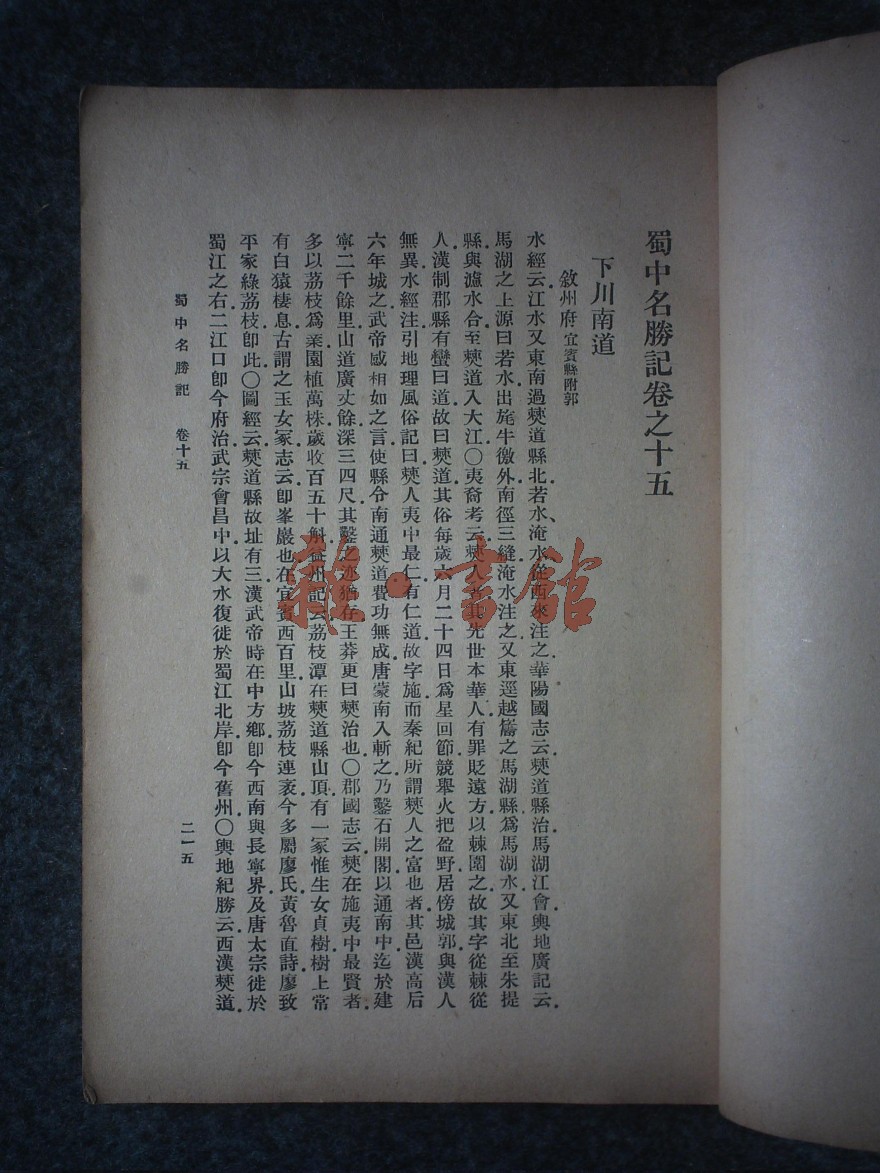 蜀中名勝記卷之十五
下川南道
敘州府 宜賓縣附郭
水經云江水又東南過僰道縣北若水、淹水從西來注之華陽國志云僰道縣治馬湖江會輿地廣記云
馬湖之上源曰若水出旄牛徼外南徑三縫淹水注之又東逕越巂之馬湖縣為馬湖水又東北至朱提
縣與瀘水合至僰道入大江〇夷裔考云僰人者其先世本華人有罪貶遠方以棘圍之故其字從棘從
人漢制郡縣有蠻曰道故曰僰道其俗每歲六月二十四日為星回節競舉火把盈野居傍城郭與漢人
無異水經注引地理風俗記曰僰人夷中最仁有仁道故字施而秦紀所謂僰人之富也者其邑漢高后
六年城之武帝感相如之言使縣令南通僰道費功無成唐蒙南入斬之乃鑿石開閣以通南中迄於建
寧二千餘里山道廣丈餘深三四尺其鑿之迹猶存王莽更曰僰治也〇郡國志云僰在施夷中最賢者
多以荔枝為業園植萬株歲收百五十斛益州記云荔枝潭在僰道縣山頂有一冢惟生女貞樹樹上常
有白猿棲息古謂之玉女冢志云卽峯巖也在宜賓西百里山坡荔枝連袤今多屬廖氏黃魯直詩廖致
平家綠荔枝卽此〇圖經云僰道縣故址有三漢武帝時在中方鄉卽今西南與長寧界及唐太宗徙於
蜀江之右二江口卽今府治武宗會昌中以大水復徙於蜀江北岸卽今舊州〇輿地紀勝云西漢僰道
蜀中名勝記 卷十五
二一五
雜·書館